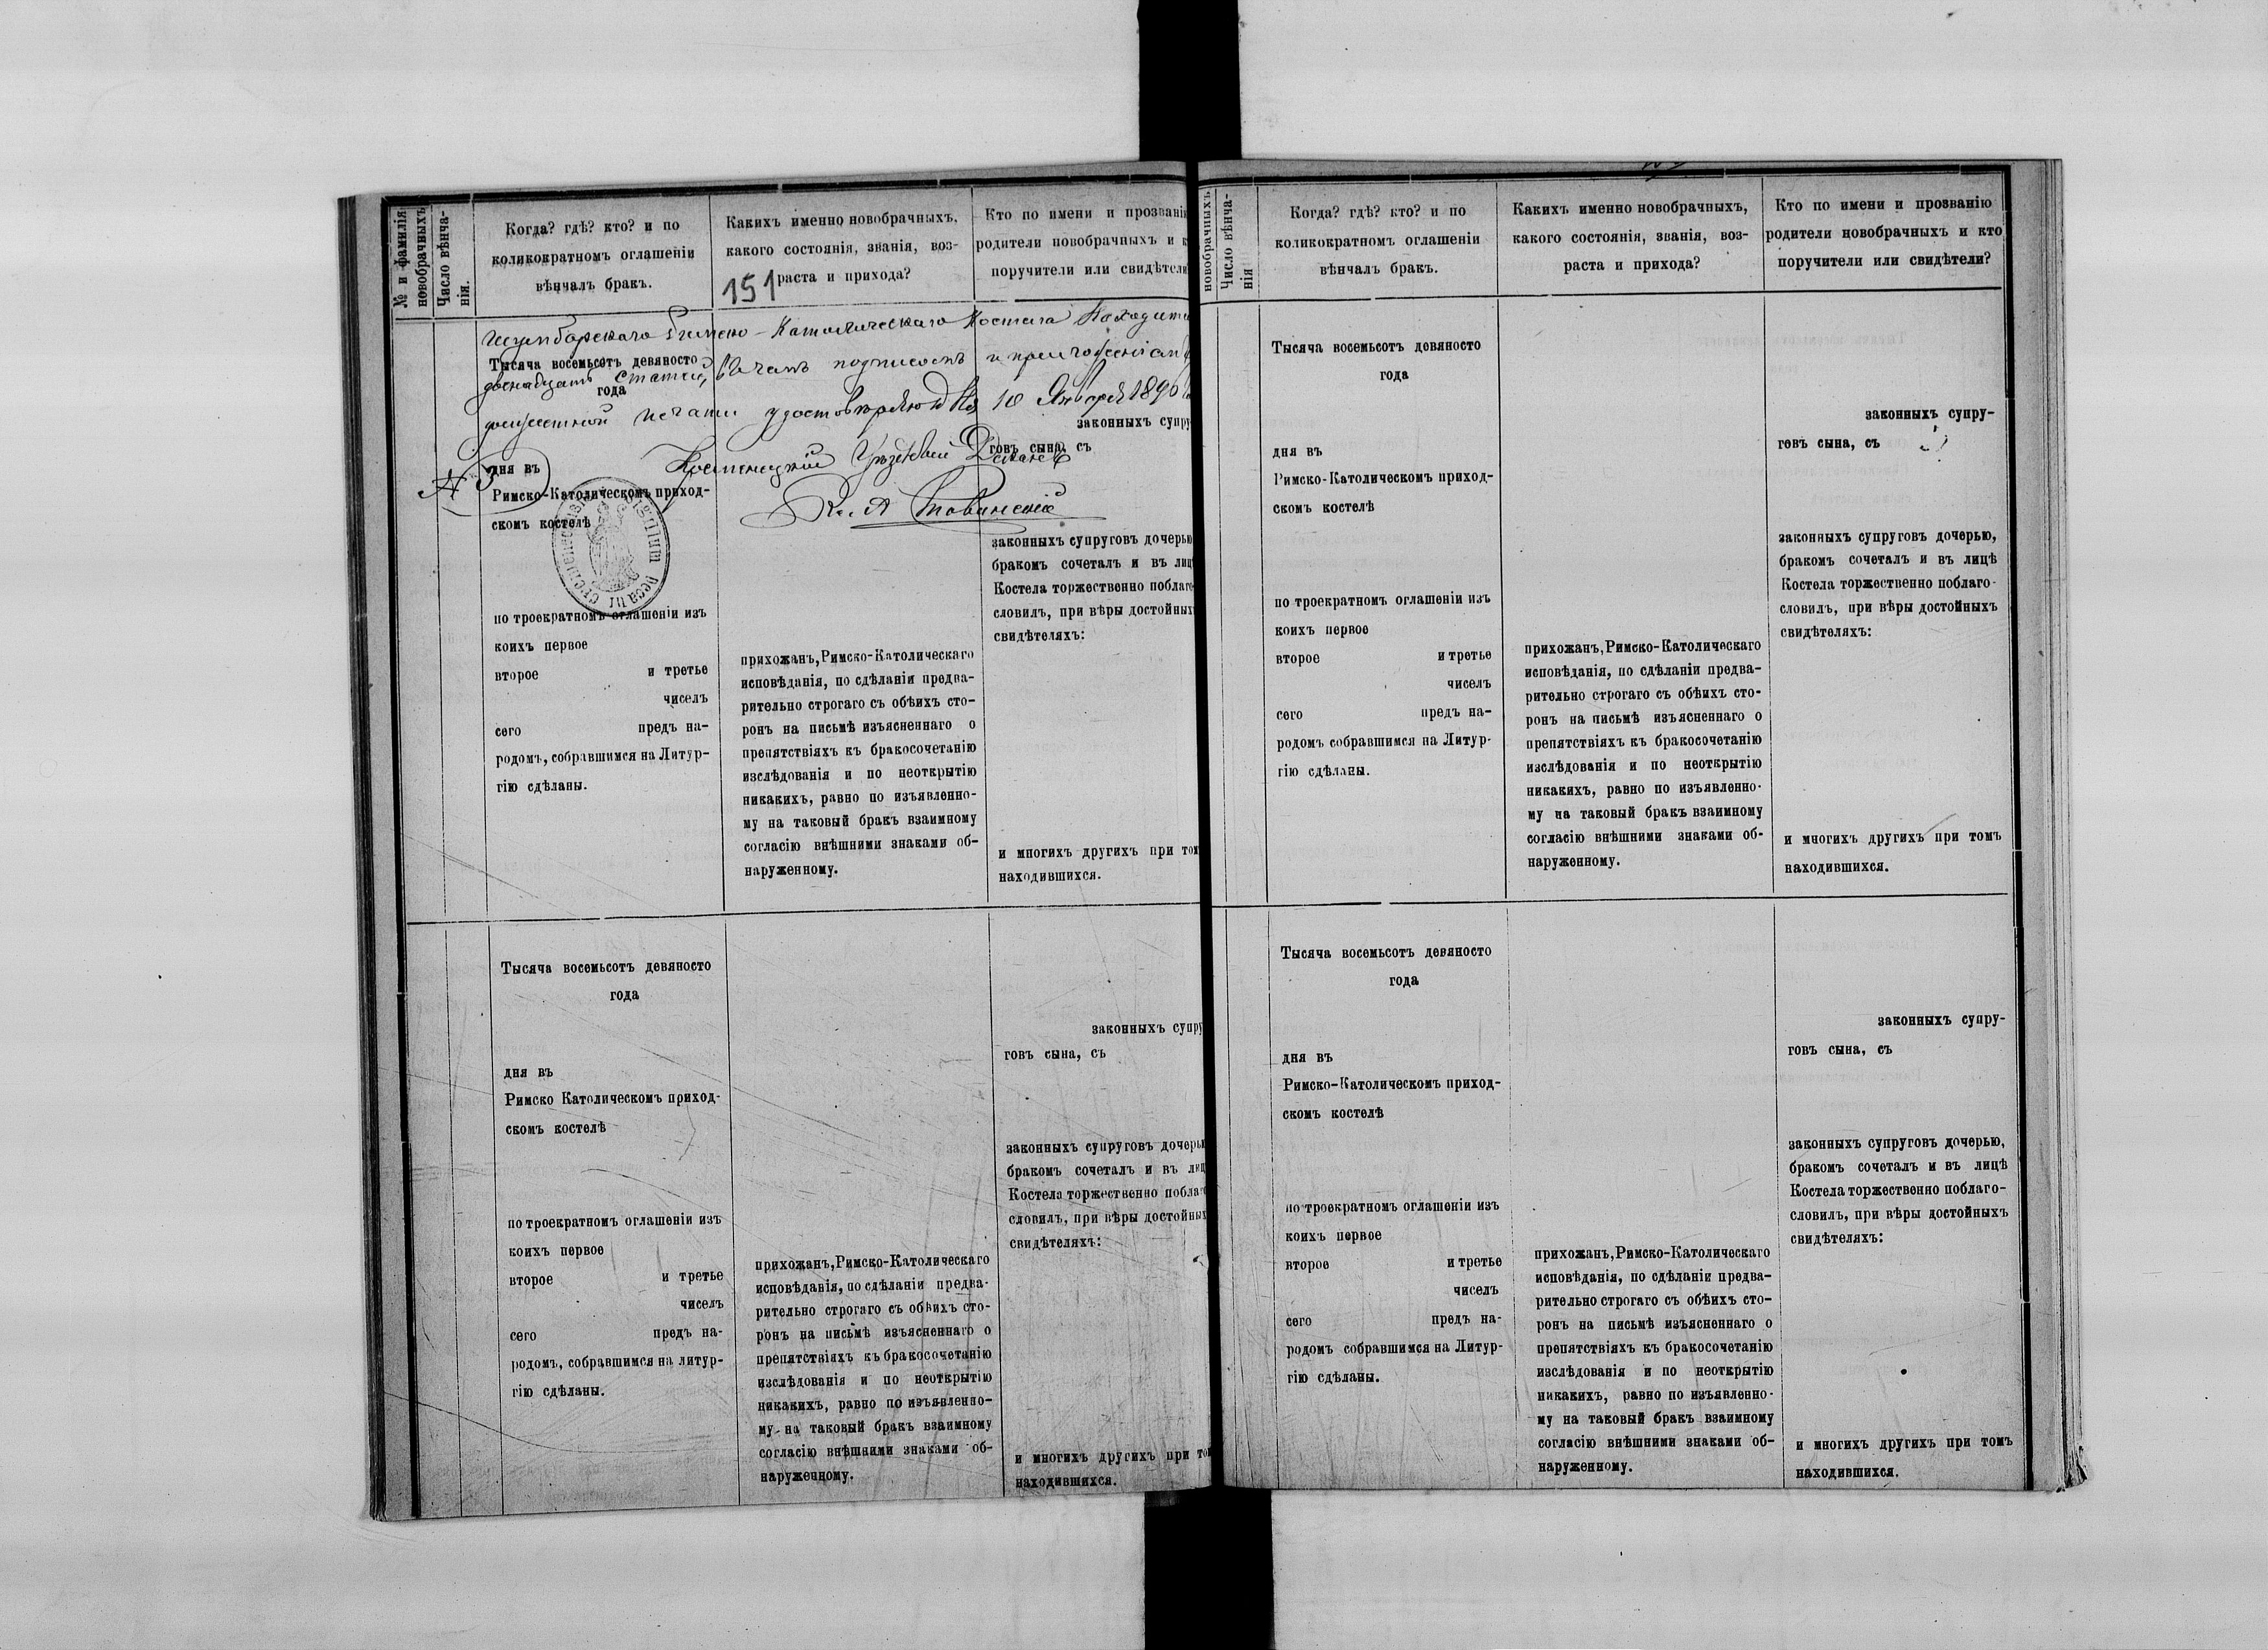 № и фамилія
новобрачныхъ
Число вѣнча-
нія.
Когда? гдѣ? кто? и по
коликократномъ оглашеніи
вѣнчалъ бракъ.
Какихъ именно новобрачныхъ,
какого состоянія, званія, воз-
раста и прихода?
151
Кто по имени и прозвані
родители новобрачныхъ и к
поручители или свидѣтели
Римско-Католическаго Костела Находит
Тысяча восемьсотъ девяносто
года
двенадцать статей, въ чемъ подписомъ и приложеніемъ
должностной печати удостовѣряю 10 Января 1896
законныхъ супру
говъ сына, съ
Кременецкій Уѣздный Деканъ
№ 3
дня въ
Римско-Католическомъ приход-
скомъ костелѣ
Кс. А
законныхъ супруговъ дочерью
бракомъ сочеталъ и въ лиц
Костела торжественно поблаго
словилъ, при вѣры достойных
свидѣтеляхъ:
по троекратномъ оглашеніи изъ
коихъ первое
второе и третье
чиселъ
сего предъ на-
родомъ, собравшимся на Литур-
гію сдѣланы.
прихожанъ, Римско-Католическаго
исповѣданія, по сдѣланіи предва-
рительно строгаго съ обѣихъ сто-
ронъ на письмѣ изъясненнаго о
препятствіяхъ къ бракосочетанію
изслѣдованія и по неоткрытію
никакихъ, равно по изъявленно-
му на таковый бракъ взаимному
согласію внѣшними знаками об-
наруженному.
и многихъ другихъ при том
находившихся.
Тысяча восемьсотъ девяносто
года
дня въ
Римско Католическомъ приход-
скомъ костелѣ
по троекратномъ оглашеніи изъ
коихъ первое
второе и третье
чиселъ
сего предъ на-
родомъ, собравшимся на литур-
гію сдѣланы.
прихожанъ, Римско-Католическаго
исповѣданія, по сдѣланіи предва-
рительно строгаго съ обѣихъ сто-
ронъ на письмѣ изъясненнаго о
препятствіяхъ къ бракосочетанію
изслѣдованія и по неоткрытію
никакихъ, равно по изъявленно-
му на таковый бракъ взаимному
согласію внѣшними знаками об-
наруженному.
законныхъ супру
говъ сына, съ
законныхъ супруговъ дочерью
бракомъ сочеталъ и въ лиц
Костела торжественно поблаг
словилъ, при вѣры достойных
свидѣтеляхъ:
и многихъ другихъ при том
находившихся.
новобрачныхъ
Число вѣнча-
нія
Когда? гдѣ? кто? и по
коликократномъ оглашеніи
вѣнчалъ бракъ.
Какихъ именно новобрачныхъ,
какого состоянія, званія, воз-
раста и прихода?
Кто по имени и прозванію
родители новобрачныхъ и кто
поручители или свидѣтели?
Тысяча восемьсотъ девяносто
года
дня въ
Римско-Католическомъ приход-
скомъ костелѣ
по троекратномъ оглашеніи изъ
коихъ первое
второе и третье
чиселъ
сего предъ на-
родомъ собравшимся на Литур-
гію сдѣланы.
прихожанъ, Римско-Католическаго
исповѣданія, по сдѣланіи предва-
рительно строгаго съ обѣихъ сто-
ронъ на письмѣ изъясненнаго о
препятствіяхъ къ бракосочетанію
изслѣдованія и по неоткрытію
никакихъ, равно по изъявленно-
му на таковый бракъ взаимному
согласію внѣшними знаками об-
наруженному.
законныхъ супру-
говъ сына, съ
законныхъ супруговъ дочерью,
бракомъ сочеталъ и въ лицѣ
Костела торжественно поблаго-
словилъ, при вѣры достойныхъ
свидѣтеляхъ:
и многихъ другихъ при томъ
находившихся.
Тысяча восемьсотъ девяносто
года
дня въ
Римско-Католическомъ приход-
скомъ костелѣ
по троекратномъ оглашеніи изъ
коихъ первое
второе и третье
чиселъ
сего предъ на-
родомъ собравшимся на Литур-
гію сдѣланы.
прихожанъ, Римско-Католическаго
исповѣданія, по сдѣланіи предва-
рительно строгаго съ обѣихъ сто-
ронъ на письмѣ изъясненнаго о
препятствіяхъ къ бракосочетанію
изслѣдованія и по неоткрытію
никакихъ, равно по изъявленно-
му на таковый бракъ взаимному
согласію внѣшними знаками об-
наруженному.
законныхъ супру-
говъ сына, съ
законныхъ супруговъ дочерью,
бракомъ сочеталъ и въ лицѣ
Костела торжественно поблаго-
словилъ, при вѣры достойныхъ
свидѣтеляхъ:
и многихъ другихъ при томъ
находившихся.